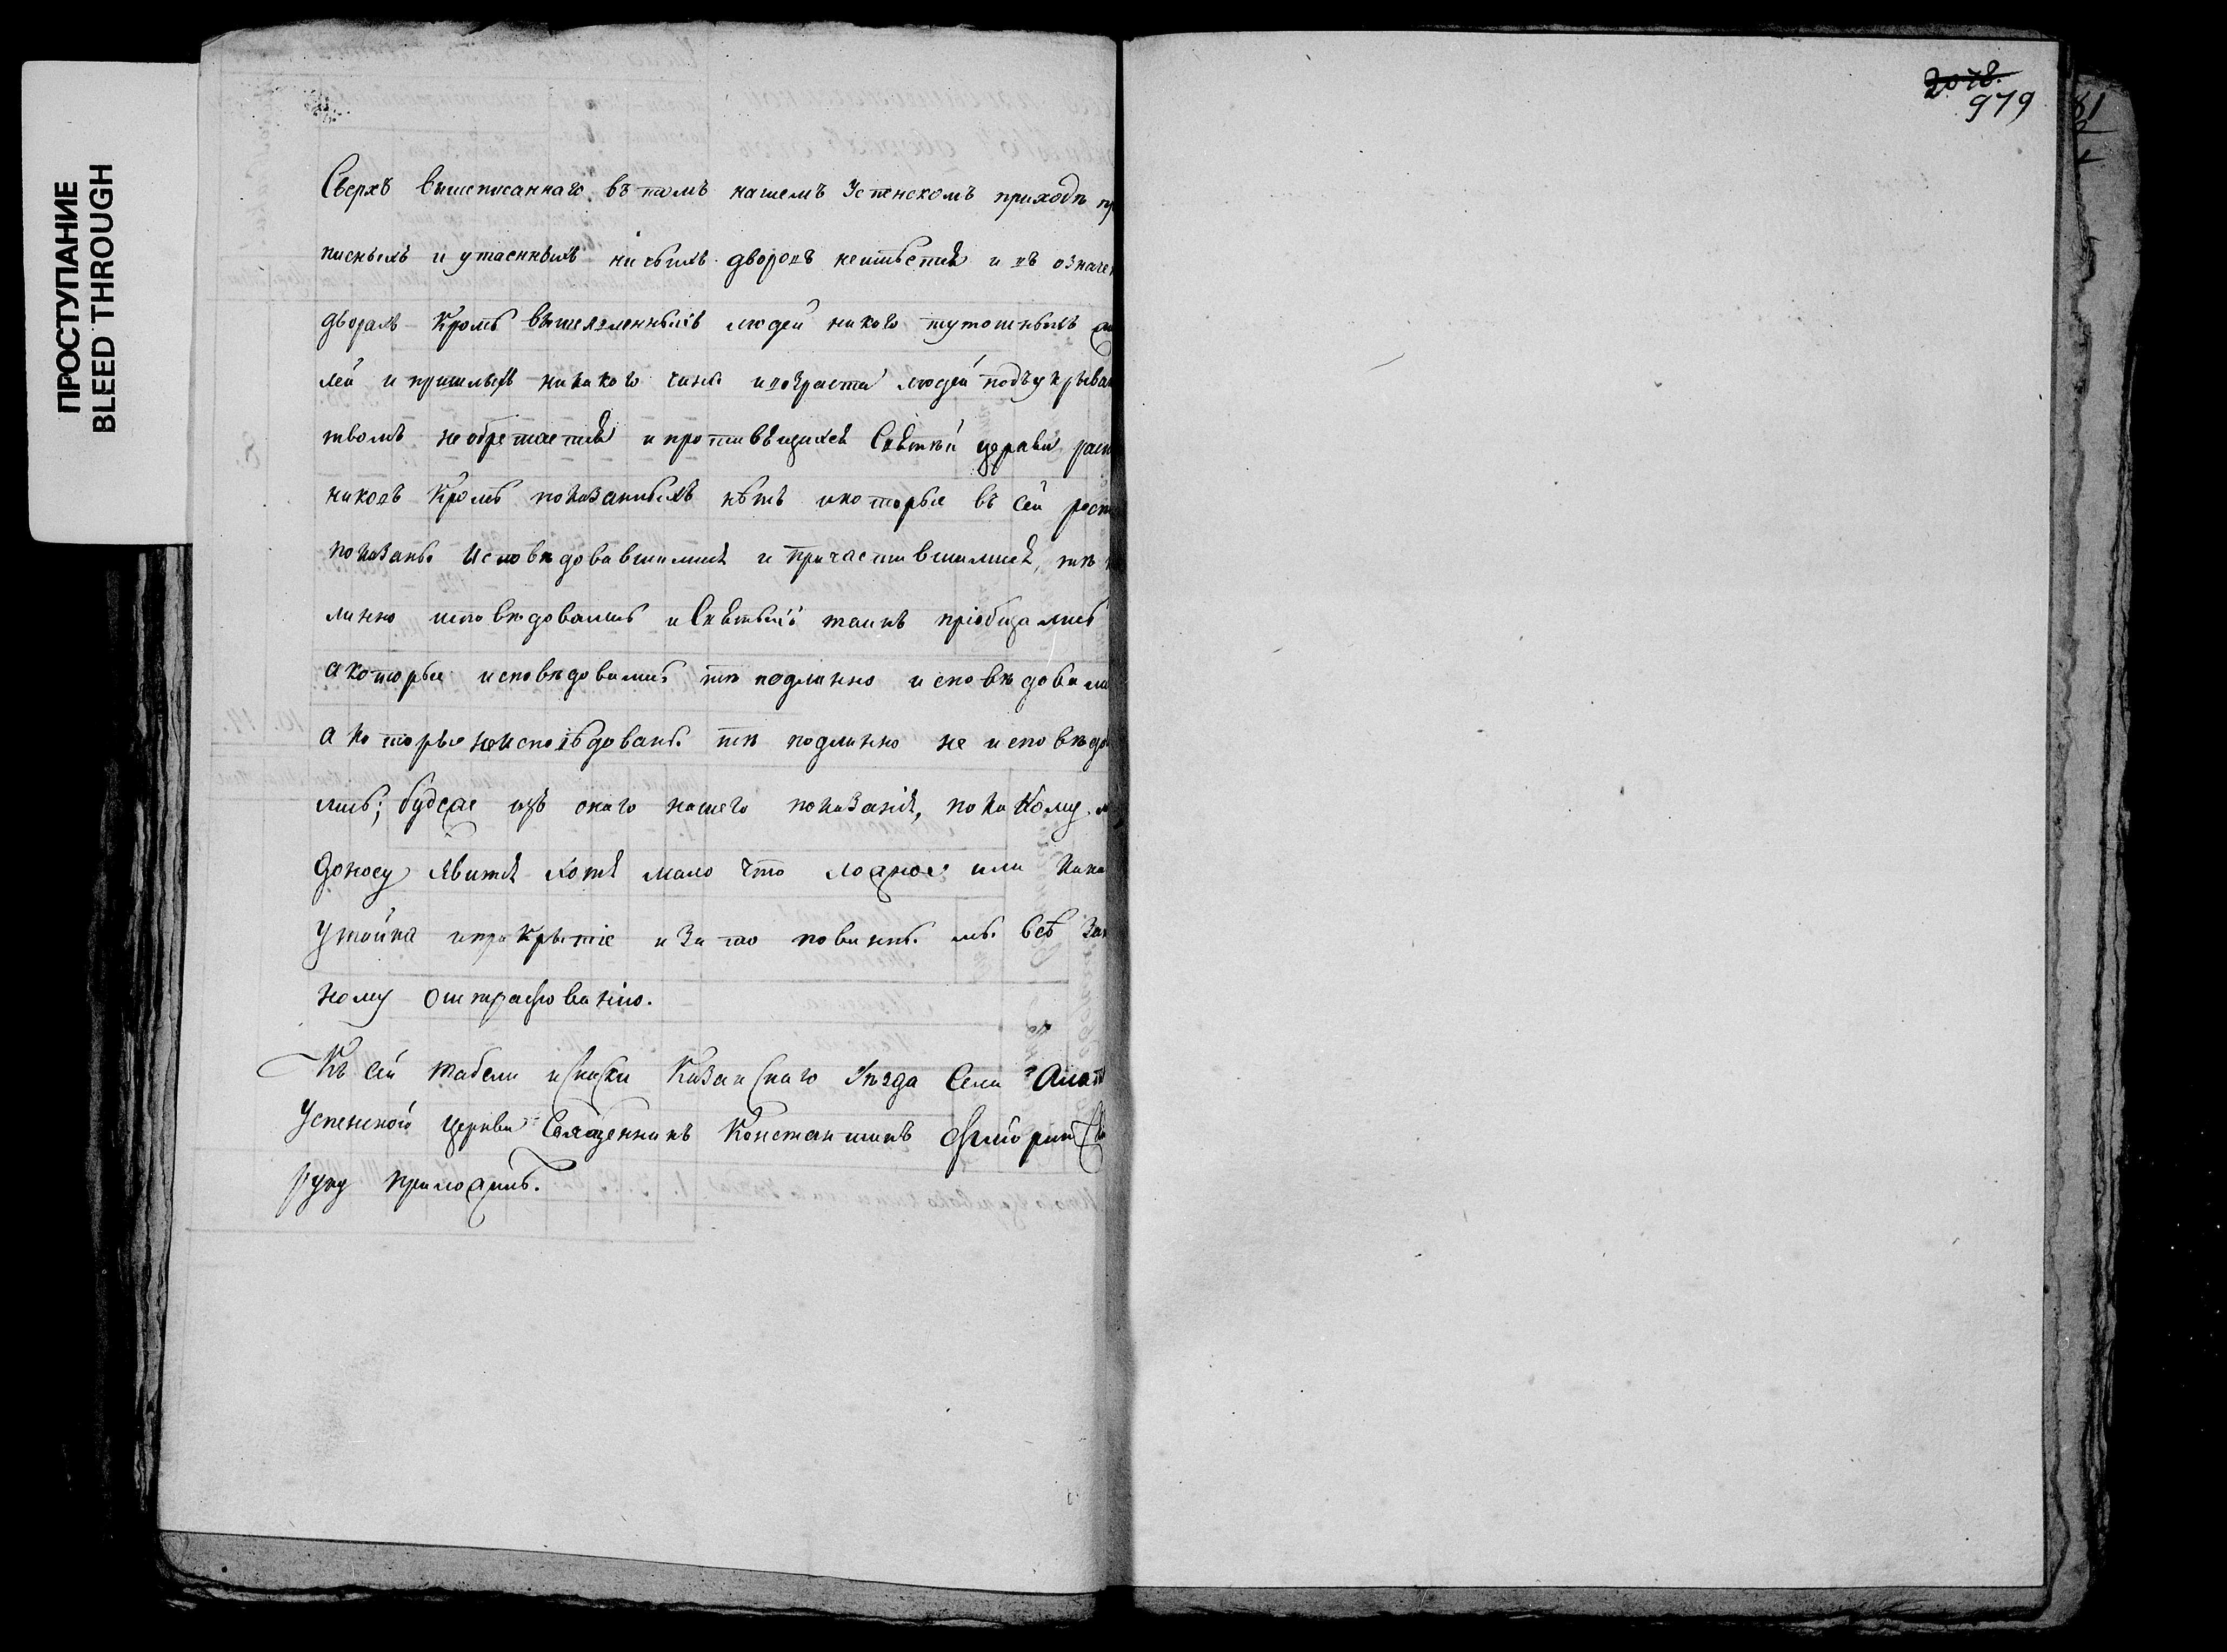 ПРОСТУПАНИЕ
BLEED THROUGH
2078.
979
81
Сверхъ вышеписаннаго въ томъ нашемъ Успенскомъ приходѣ пр
писныхъ и утаенныхъ ничьихъ дворовъ неимѣется и въ означен
дворахъ кромѣ вышеявленныхъ людей никого тутошнихъ жи
лей и пришлыхъ никакого чина и возраста людей подъ укрыва
тствомъ не обретается и противящихся Святѣй церкви раск
никовъ кромѣ показанныхъ нѣтъ и которые въ сей рос
показаны исповѣдовавшимися и причастившимися, тѣ
линно исповѣдовались и Святыхъ таинъ пріобщались
а которые исповѣдовались тѣ подлинно исповѣдовали
а которые неисповѣдованы тѣ подлинно не исповѣдо
лись; буде же изъ онаго нашего показанія, по какому
доносу явится хотя мало что ложное или кака
утайка и прикрытіе и за то повинны мы всѣ зак
ному штрафованію.
Къ сей табели и Скаски Казанскаго уѣзда Села
Успенской церкви Священникъ Константинъ
руку приложилъ.